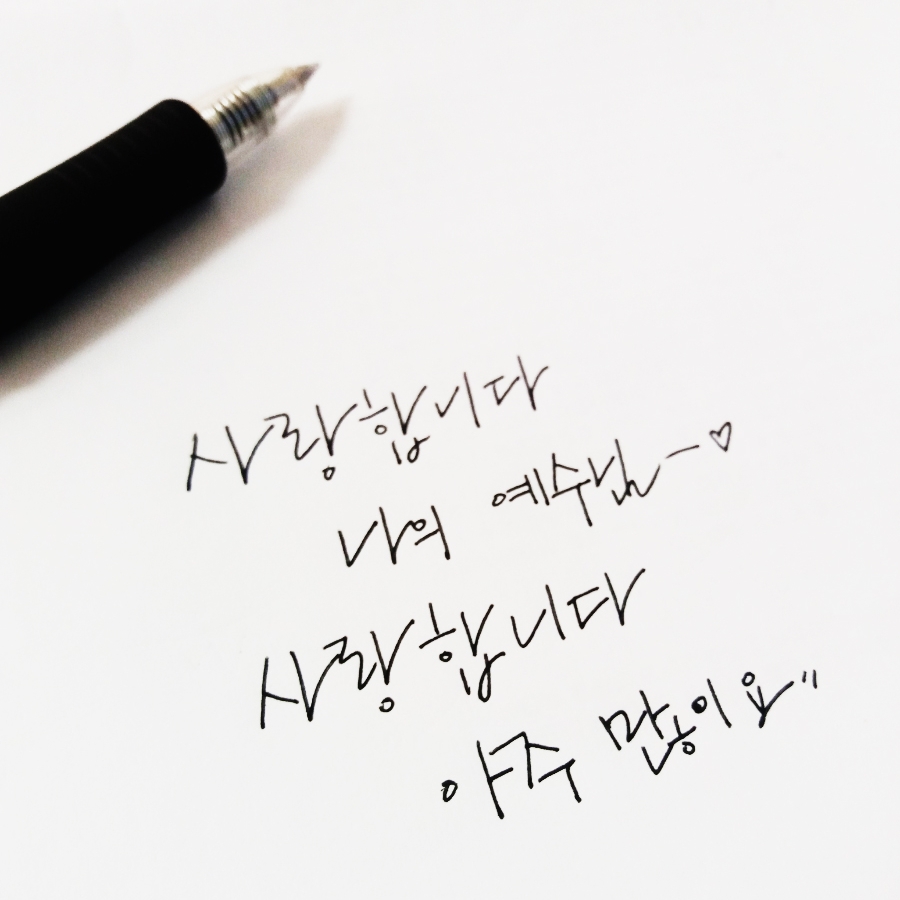 사랑합니다
나의 예수님~♡
사랑합니다
아주 많이요"